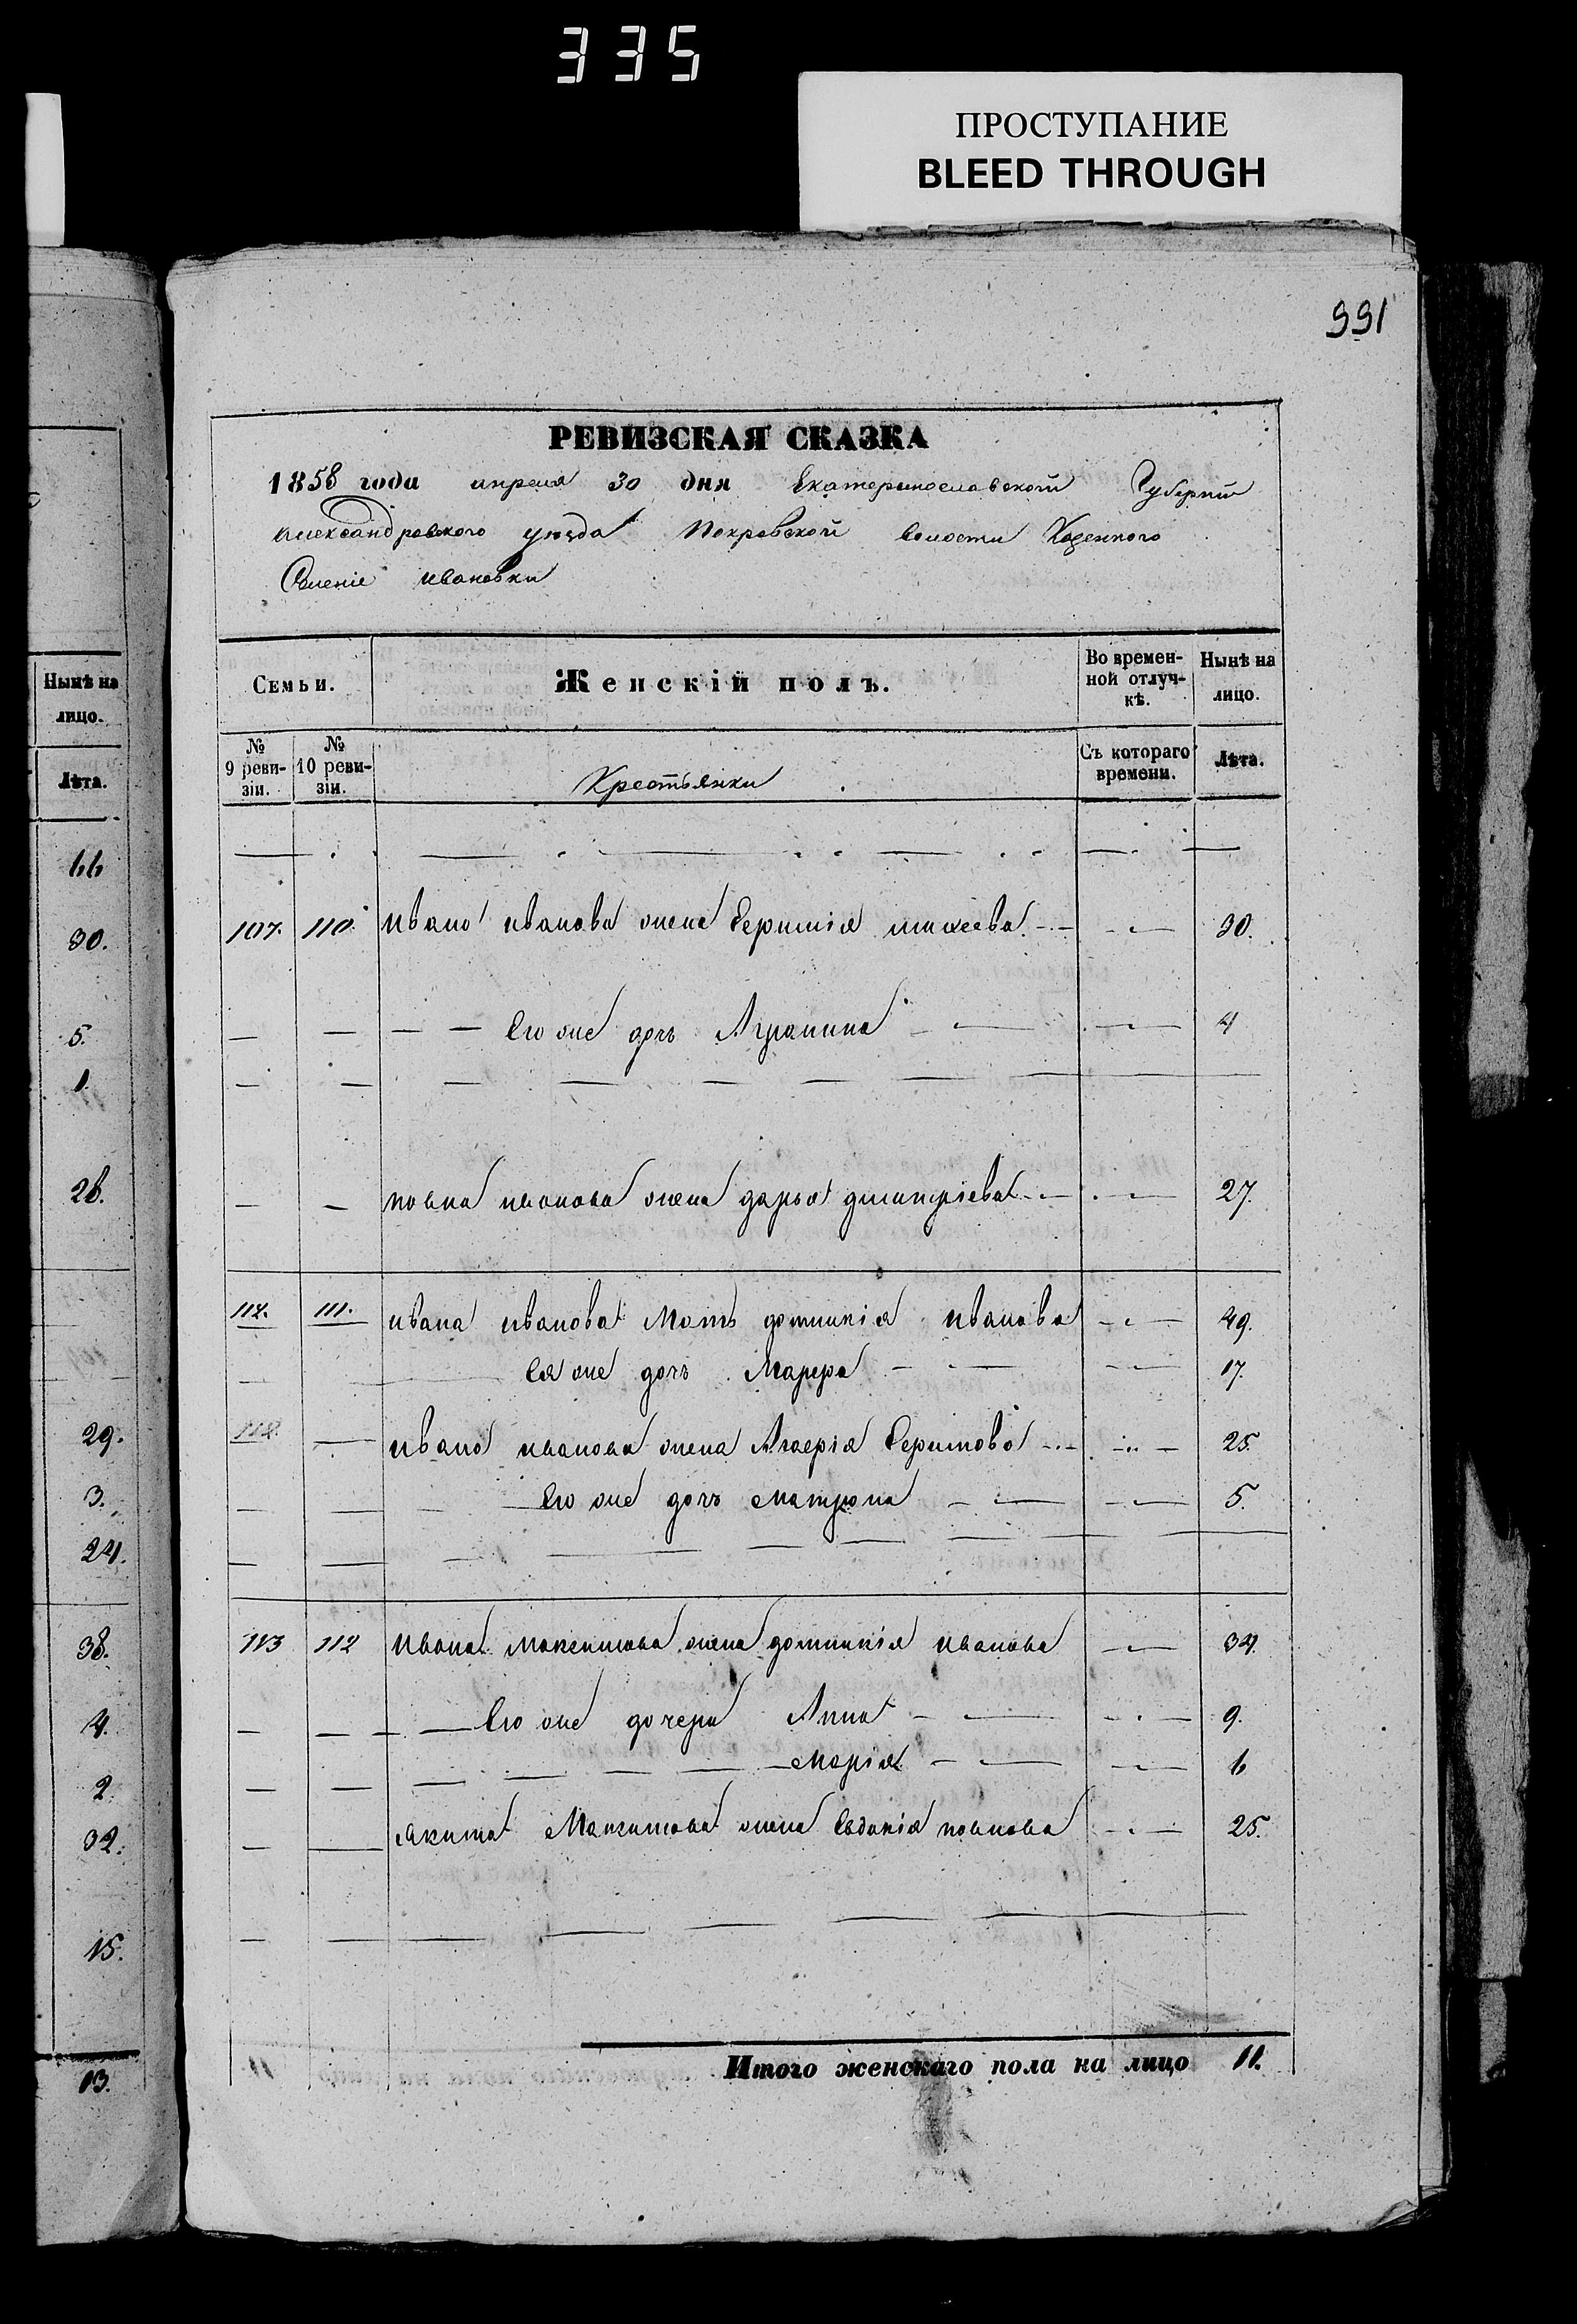 335
ПРОСТУПАНИЕ
BLEED THROUGH
991
РЕВИЗСКАЯ СКАЗКА
1858 года апреля 30 дня Екатеринославской Губерніи
Александровского уѣзда Покровской волости Казенного
Селеніе ивановки
Семьи.
Женскій полъ.
Во времен-
ной отлуч-
кѣ.
Нынѣ на
лицо.
№
9 реви-
зіи.
№
10 реви-
зіи.
Крестьянки
Съ котораго
времени.
Лѣта.
107. 110. ивана иванова жена михеева 30.
Его же дочь 4
иванова жена дарья дмитріева 27.
112. 111. ивана иванова Мать домникія иванова 49.
Ея же дочь Марфа 17.
112. ивана иванова жена Ефимова 25.
Его же дочь матрона 5.
113 112 ивана максимова жена домникія иванова 34.
Его же дочери Анна 9.
Марія 6
якима Максимова жена Евдокія 25.
Итого женскаго пола на лицо 11.
Нынѣ на
лицо.
Лѣта.
66
30.
5.
1.
28.
29.
3.
24.
38.
4.
2.
32.
15.
13.